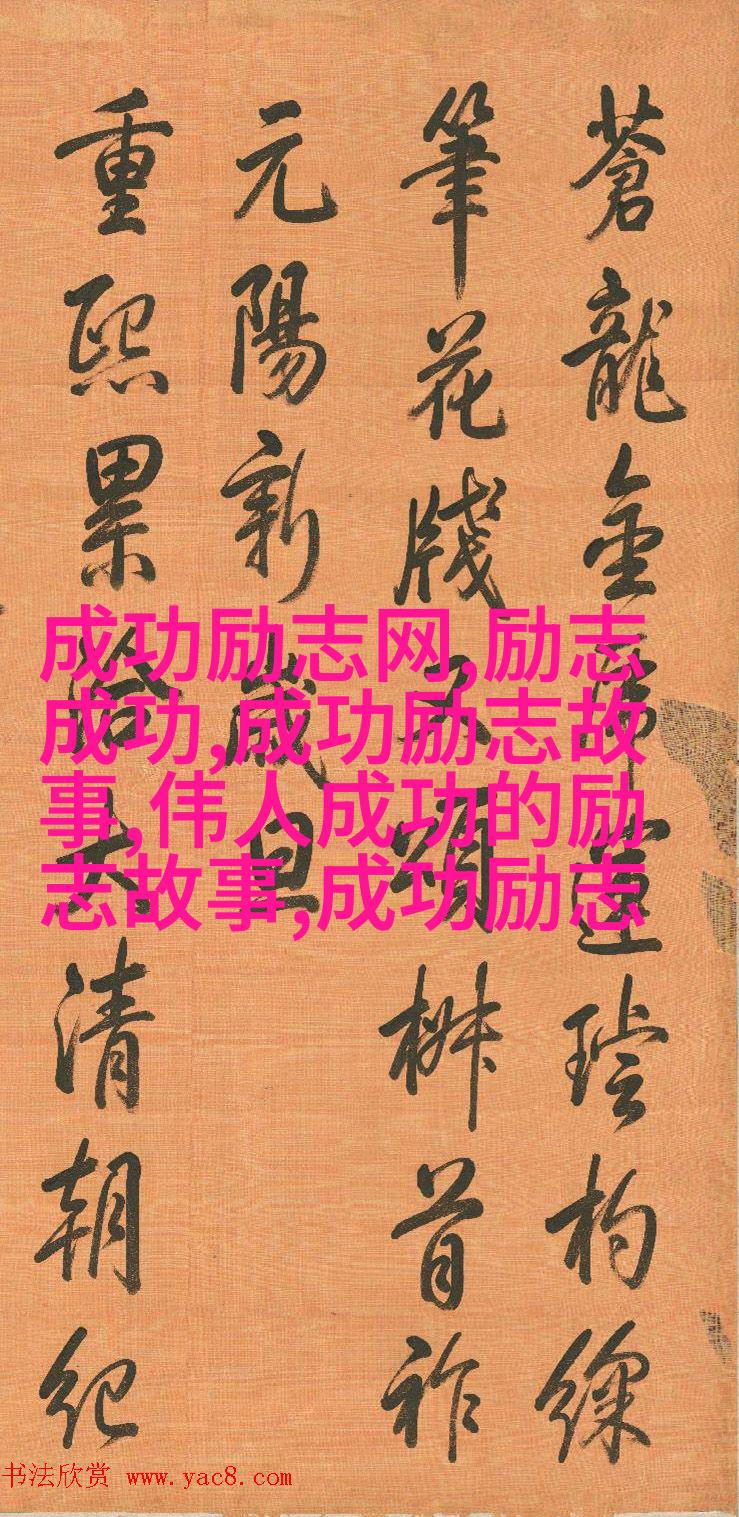 蒼龍金運璿杓
筆花牋頌椒首祚
元陽新歲旦
重熙累洽大清朝紀
成功励志网,励志
成功,成功励志故
事,伟人成功的励
志故事,成功励志
书法欣赏 www.yac8.com